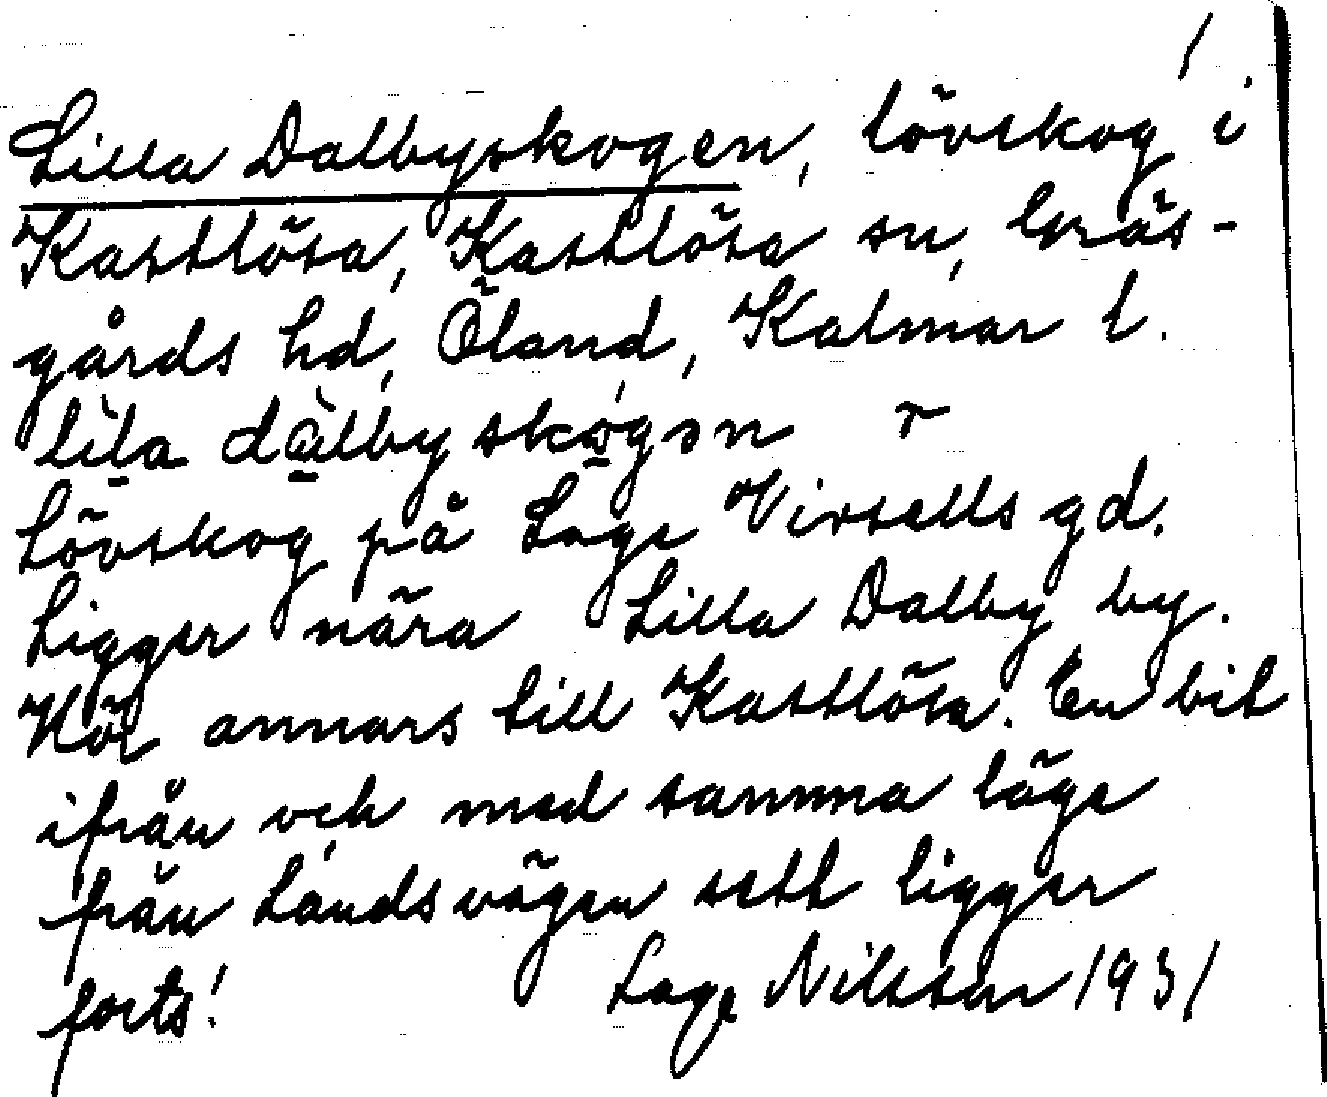 1
Lilla Dalbyskogen, lövskog i
Kastlösa, Kastlösa sn, Gräs-
gårds hd, Öland, Kalmar l.
lìla dàlbyskógən
Lövskog på Lage Virsells gd.
Ligger nära Lilla Dalby by.
Hör annars till Kastlösa. En bit
ifrån och med samma läge
från Landsvägen sett ligger
forts! Lage Nilsson 1931